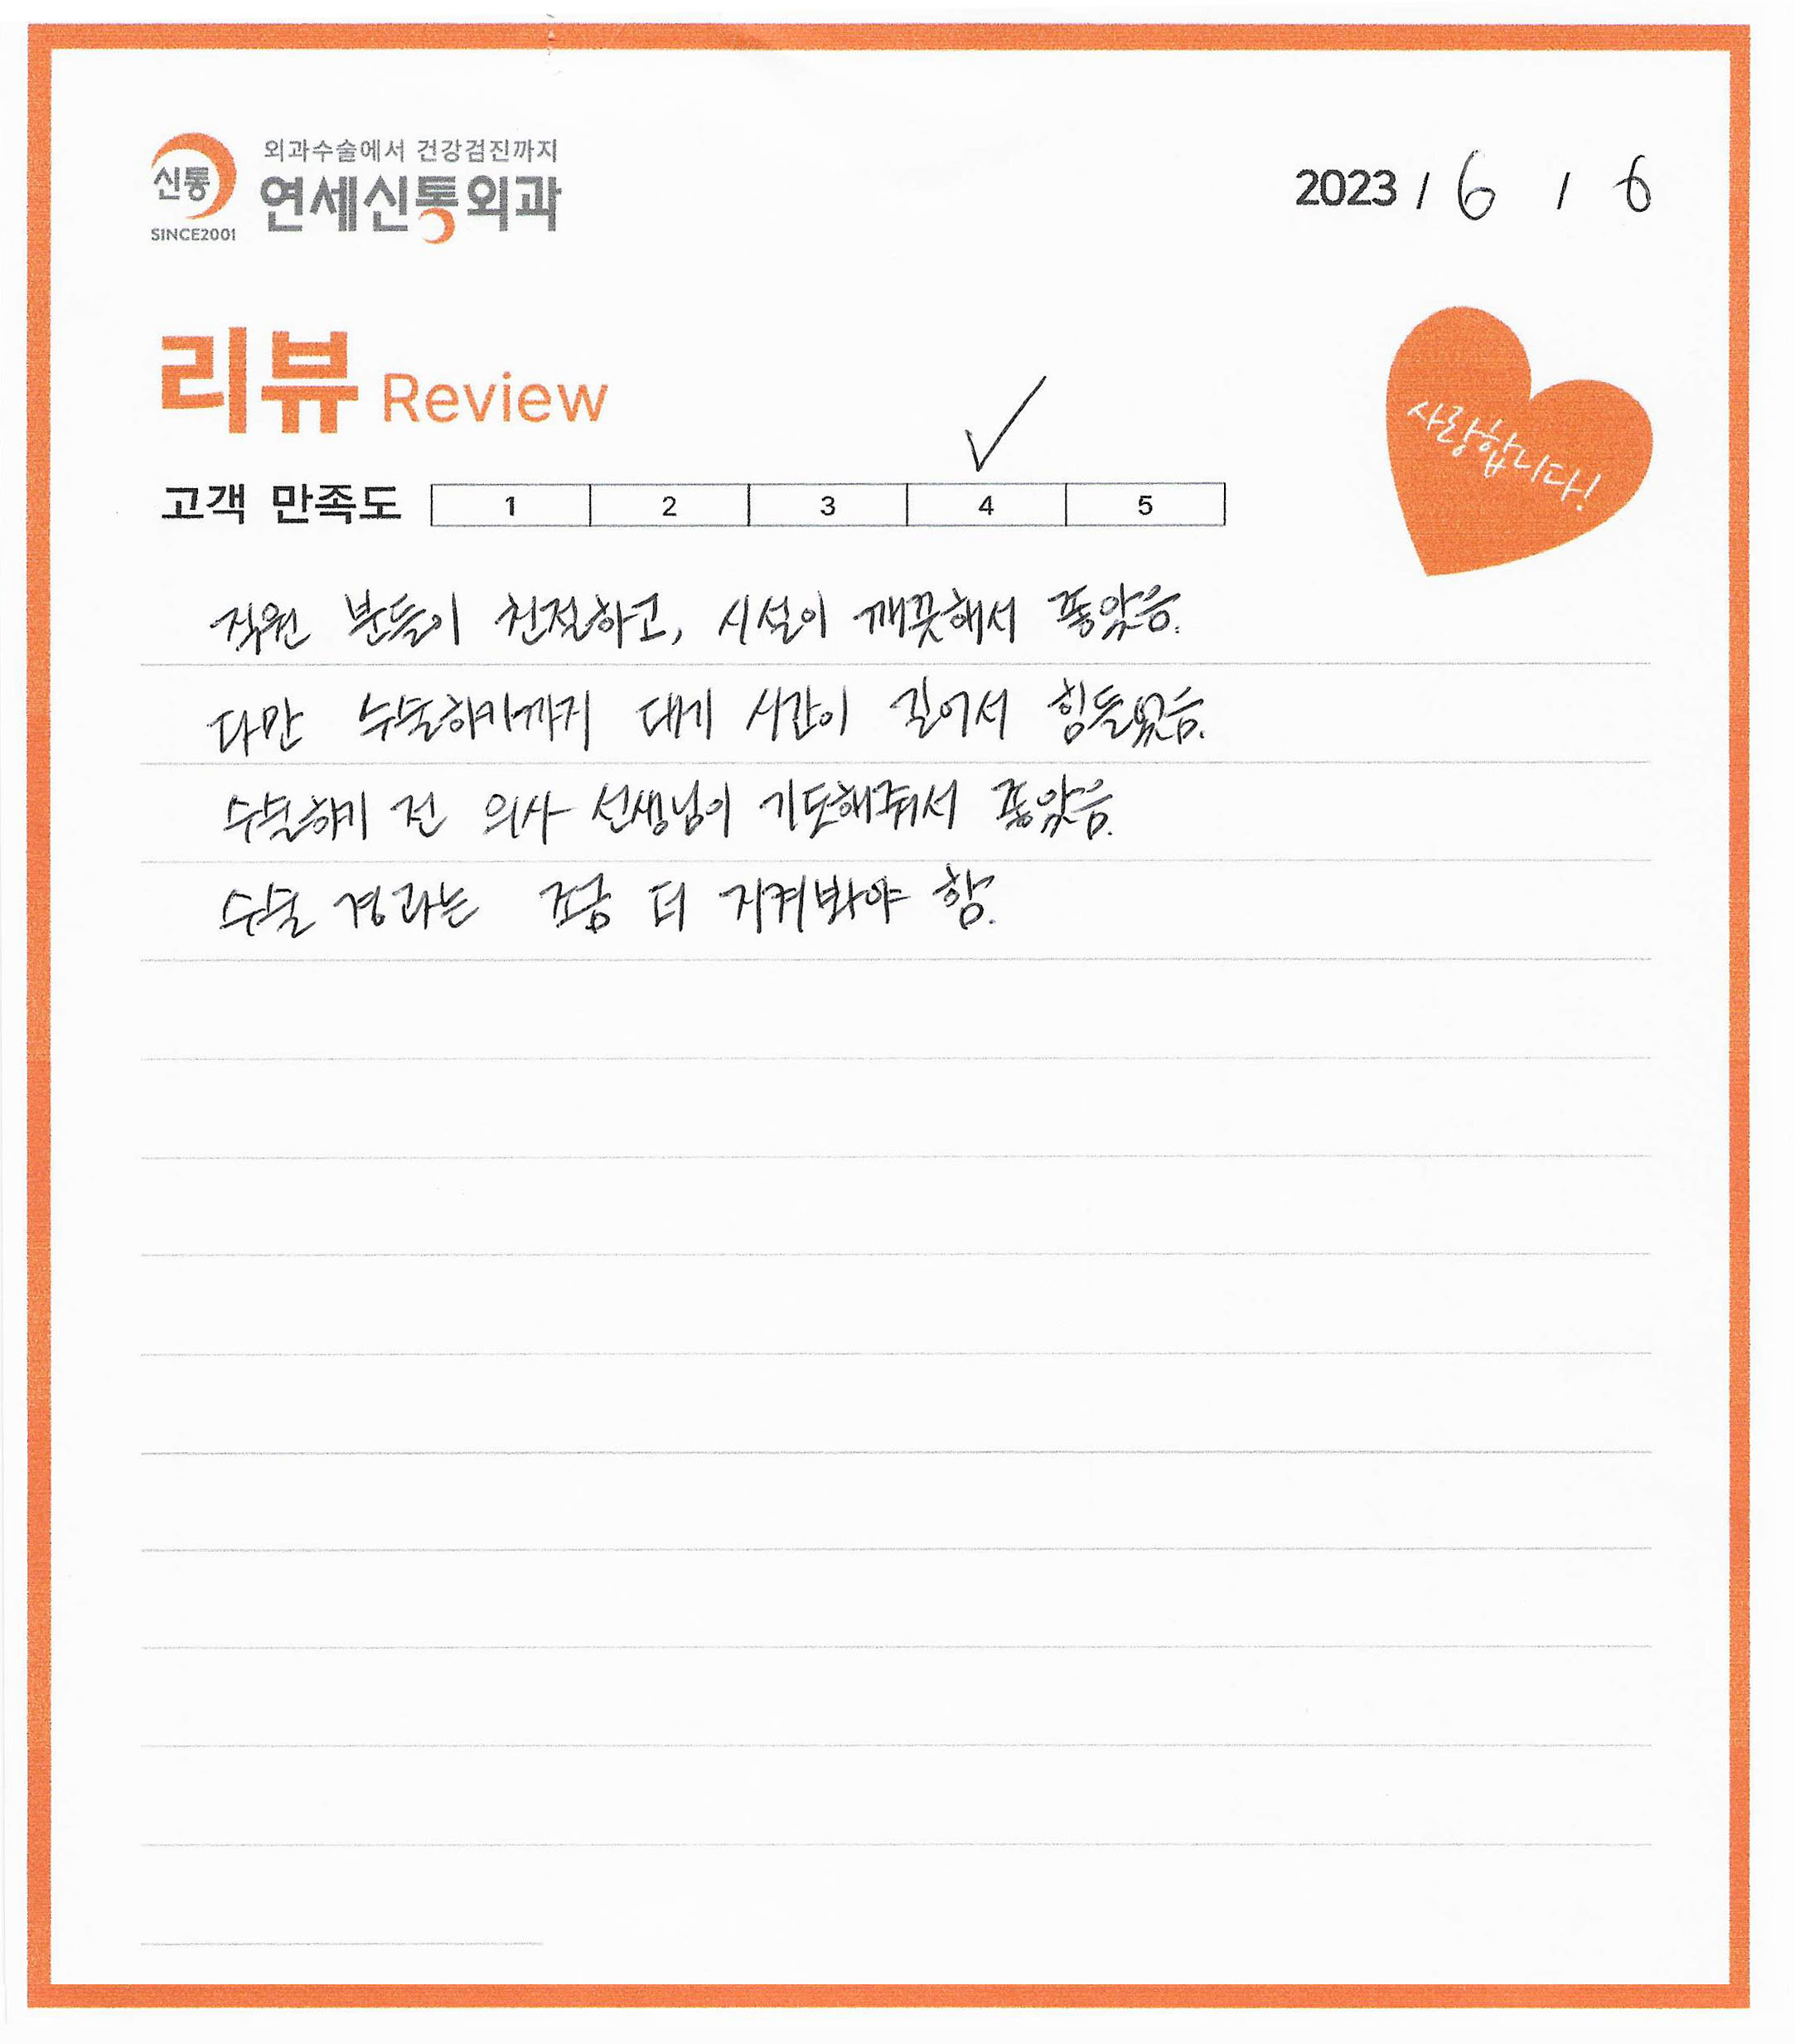 외과수술에서 건강검진까지
신통 연세신통외과
SINCE2001
2023 / 6 / 6
리뷰 Review
사랑합니다!
고객 만족도 1 2 3 4 5
직원 분들이 친절하고, 시설이 깨끗해서 좋았음.
다만 수술하기까지 대기 시간이 길어서 힘들었음.
수술하기 전 의사 선생님이 기도해줘서 좋았음.
수술 경과는 조금 더 지켜봐야 함.